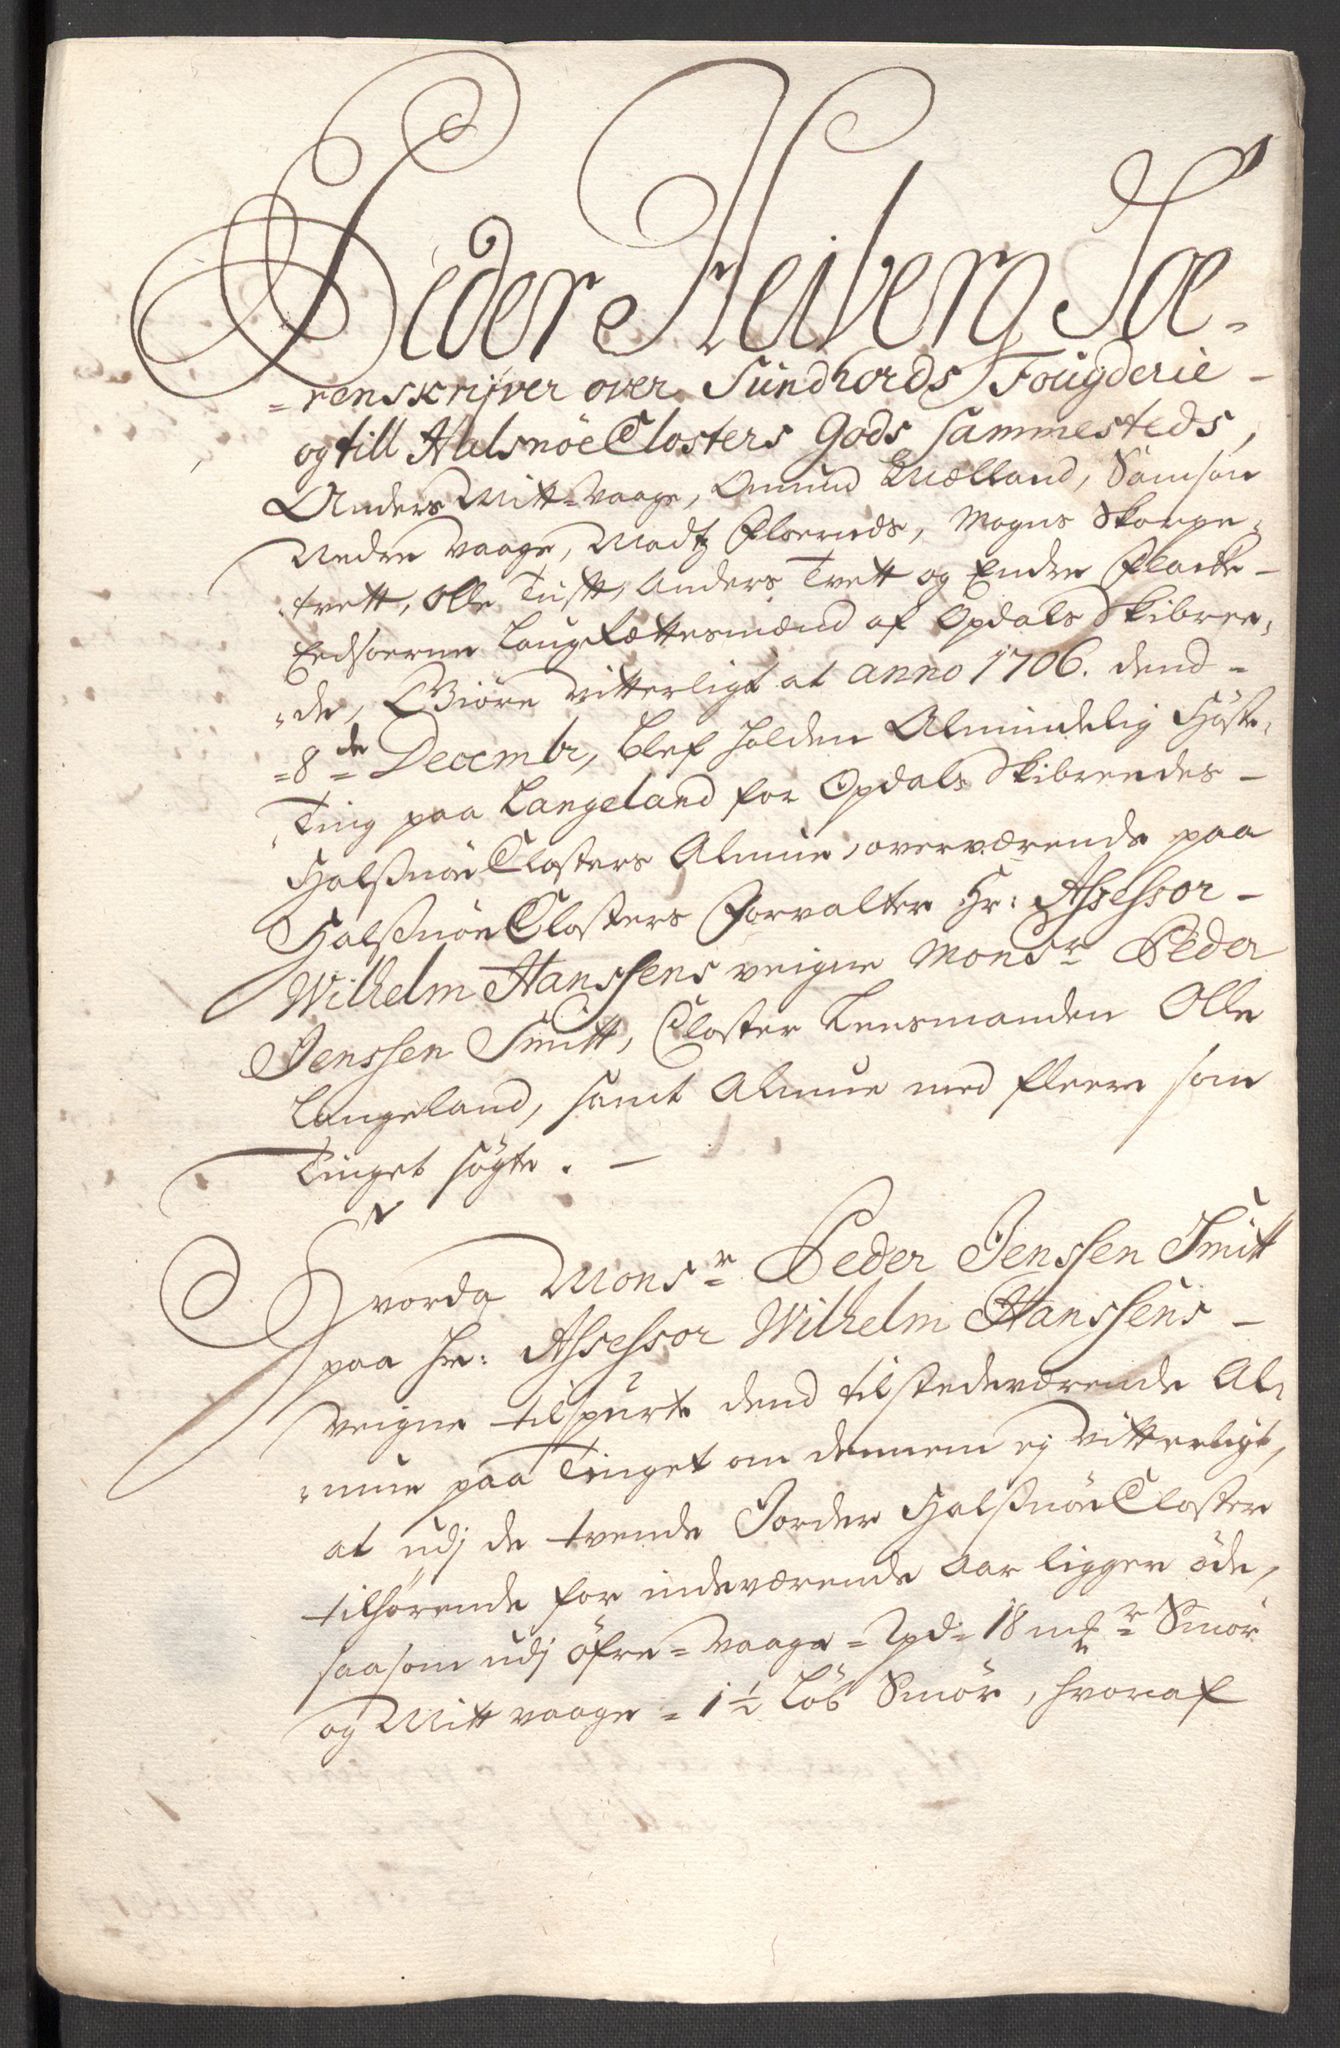 Peder Heiberg Soe-
-renskrifver over Sundhords Fougderie-
og till Halsnöe Closters Gods sammesteds,
Anders Mitt-Vaage, Omund Mælland, Samson
Nedre Vaage, Madtz Floenæs, Mogns Skorpe-
-tvett, Olle Tufft, Anders Tvett og Endre Flacke-
Eedsorne Laugrættesmænd af Opdals Skibree-
-de, Giöre Vitterligt at anno 1706. dend-
=8de Decembr, blef holden Almindelig Höste-
Ting paa Langeland for Opdals Skibredes-
Halssnöe Closters Almue, overværende paa
Halssnöe Closters Forvalter Hr: Assessor-
Wilhelm Hanssens veigne Monsr Peder
Jenssen Smitt, Closter Lensmanden Olle
Langeland, samt Almue med fleere som
Tinget søgte. -
Hvorda Monsr Peder Jenssen Smitt
paa Hr: Assessor Wilhelm Hanssens-
veigne tilspurte dend tilstedeværende Al-
-mue paa Tinget om dennem ej Vitterligt,
at udj de tvende Jorder Halssnöe Closter
tilhörende for indeværende Aar ligger öde,
saasom udj öfre-Vaage-2pd-18 mkr Smör
og Mitt vaage-1½ Löb Smör, hvoraf